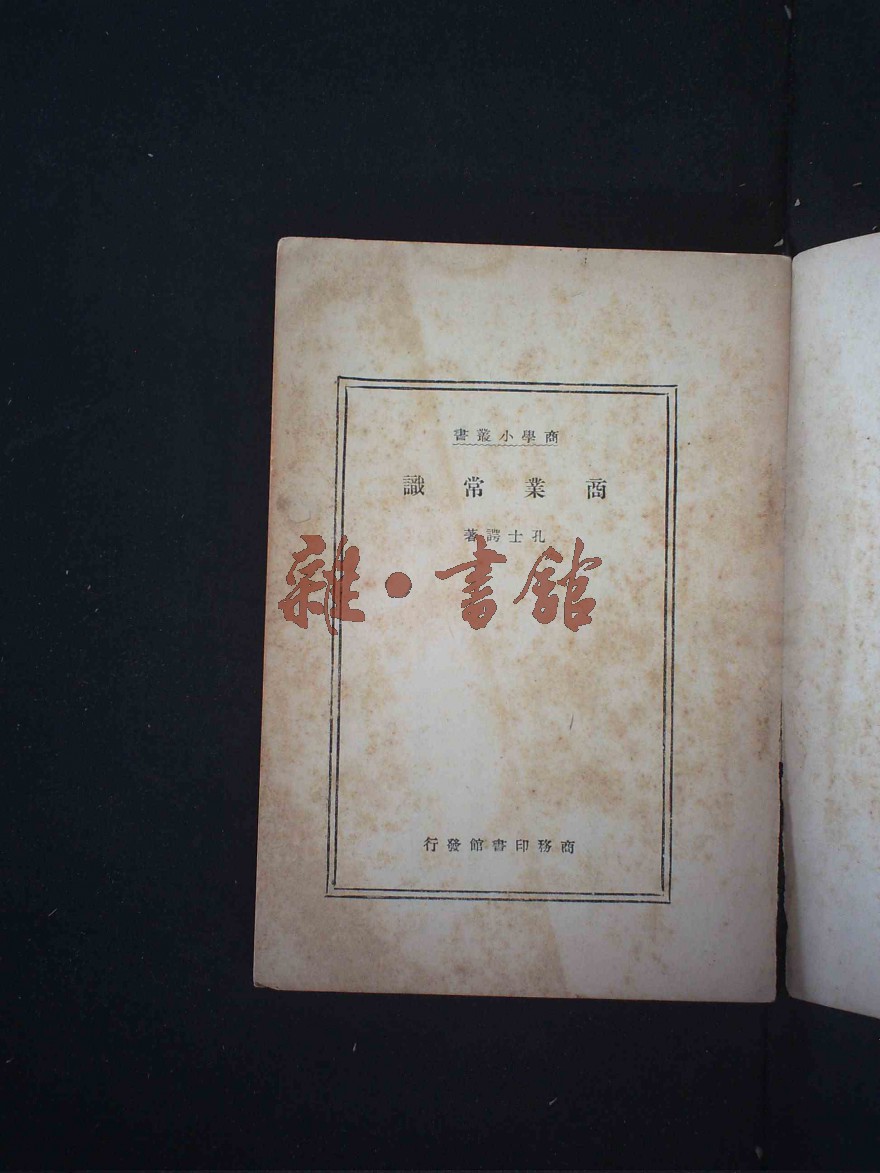 商學小叢書
商業常識
孔士諤著
雜·書館
商務印書館發行